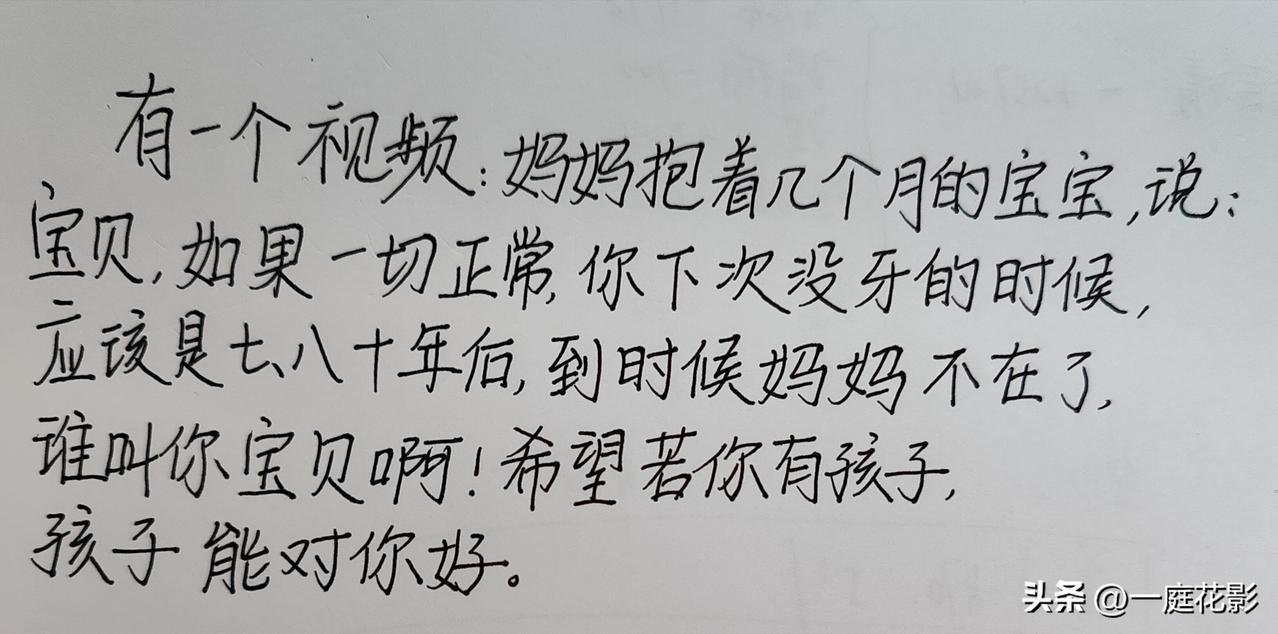 有一个视频:妈妈抱着几个月的宝宝,说:
宝贝,如果一切正常,你下次没牙的时候,
应该是七、八十年后,到时候妈妈不在了,
谁叫你宝贝啊!希望若你有孩子,
孩子能对你好。
头条 @一庭花影